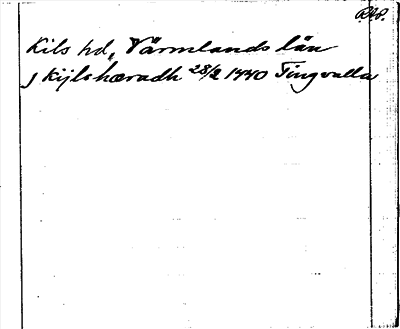 Kils hd, Värmlands län
J kijlshæradh 28/2 1440 Tingvalla